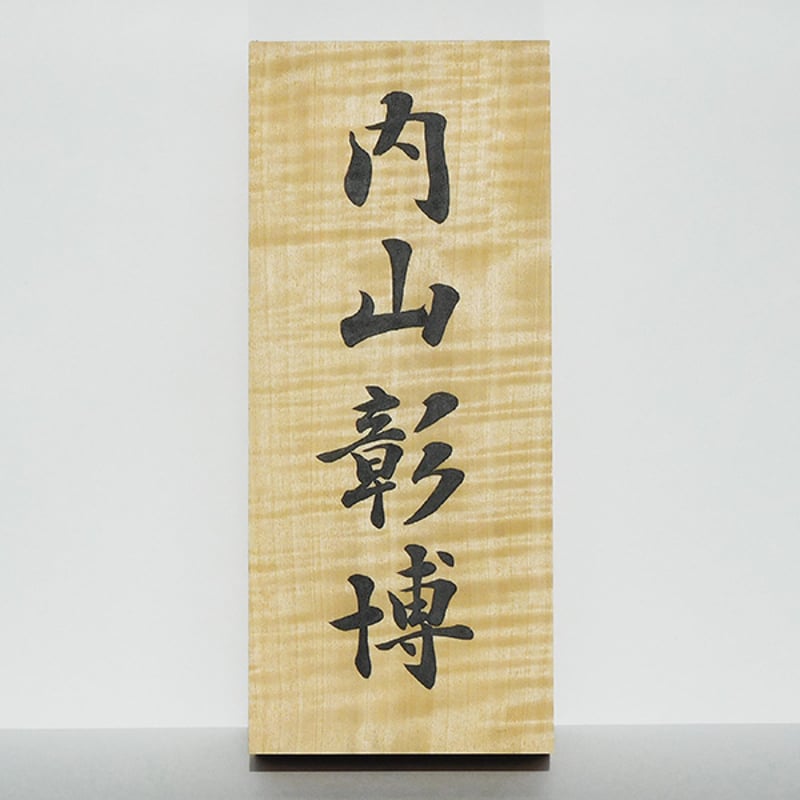 内山彰博